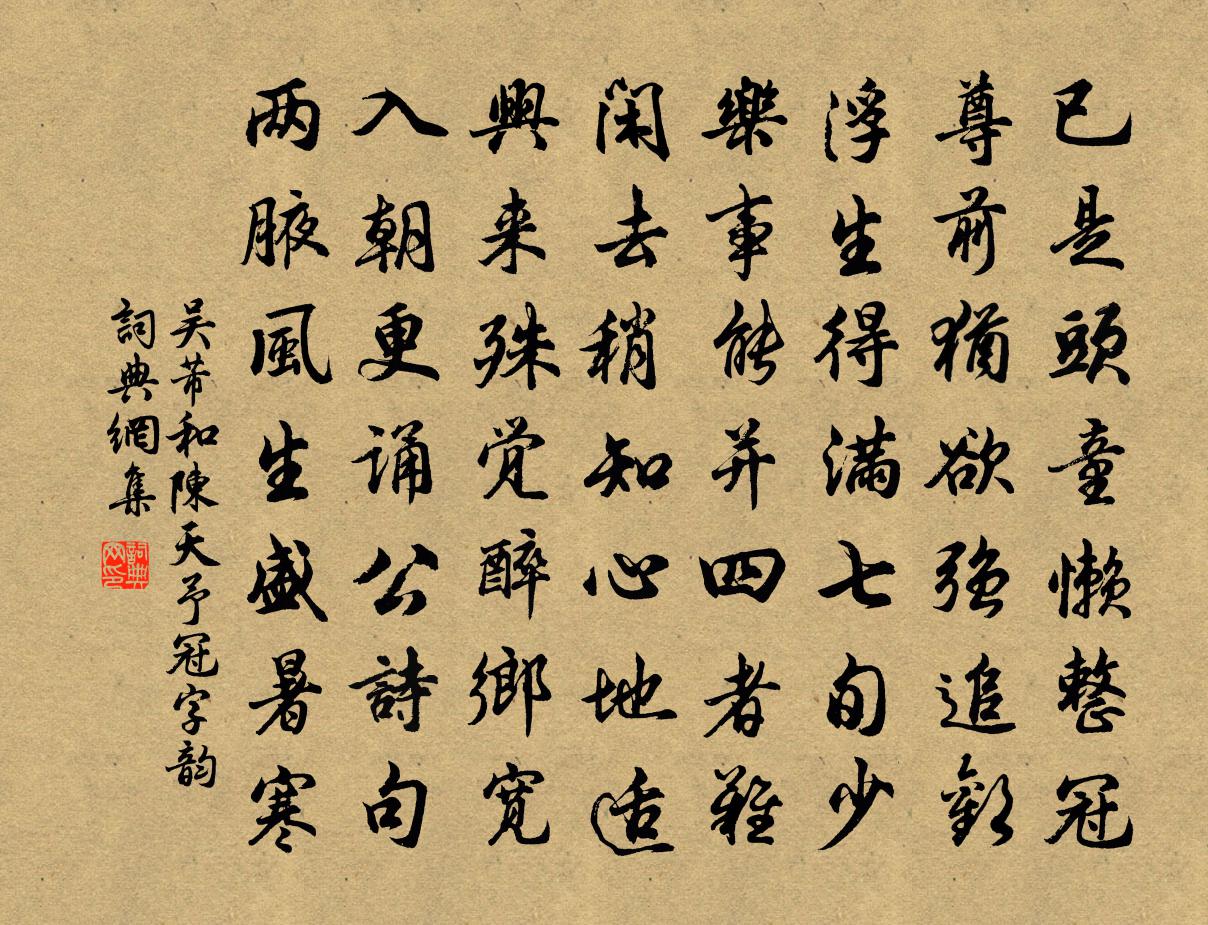 已是頭童懶整冠
尊前猶欲強追歡
浮生得滿七旬少
樂事能并四者難
閑去稍知心地适
興来殊觉醉鄉寬
入朝更诵公詩句
两腋風生盛暑寒
吴芾和陳天予冠字韵
詞典網集
詞典网印